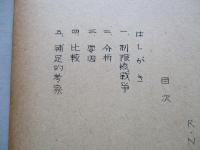 目次
はしがき
一、制限核戦争
二、分析
三、要因
四、比較
五、補足的考察
R.N